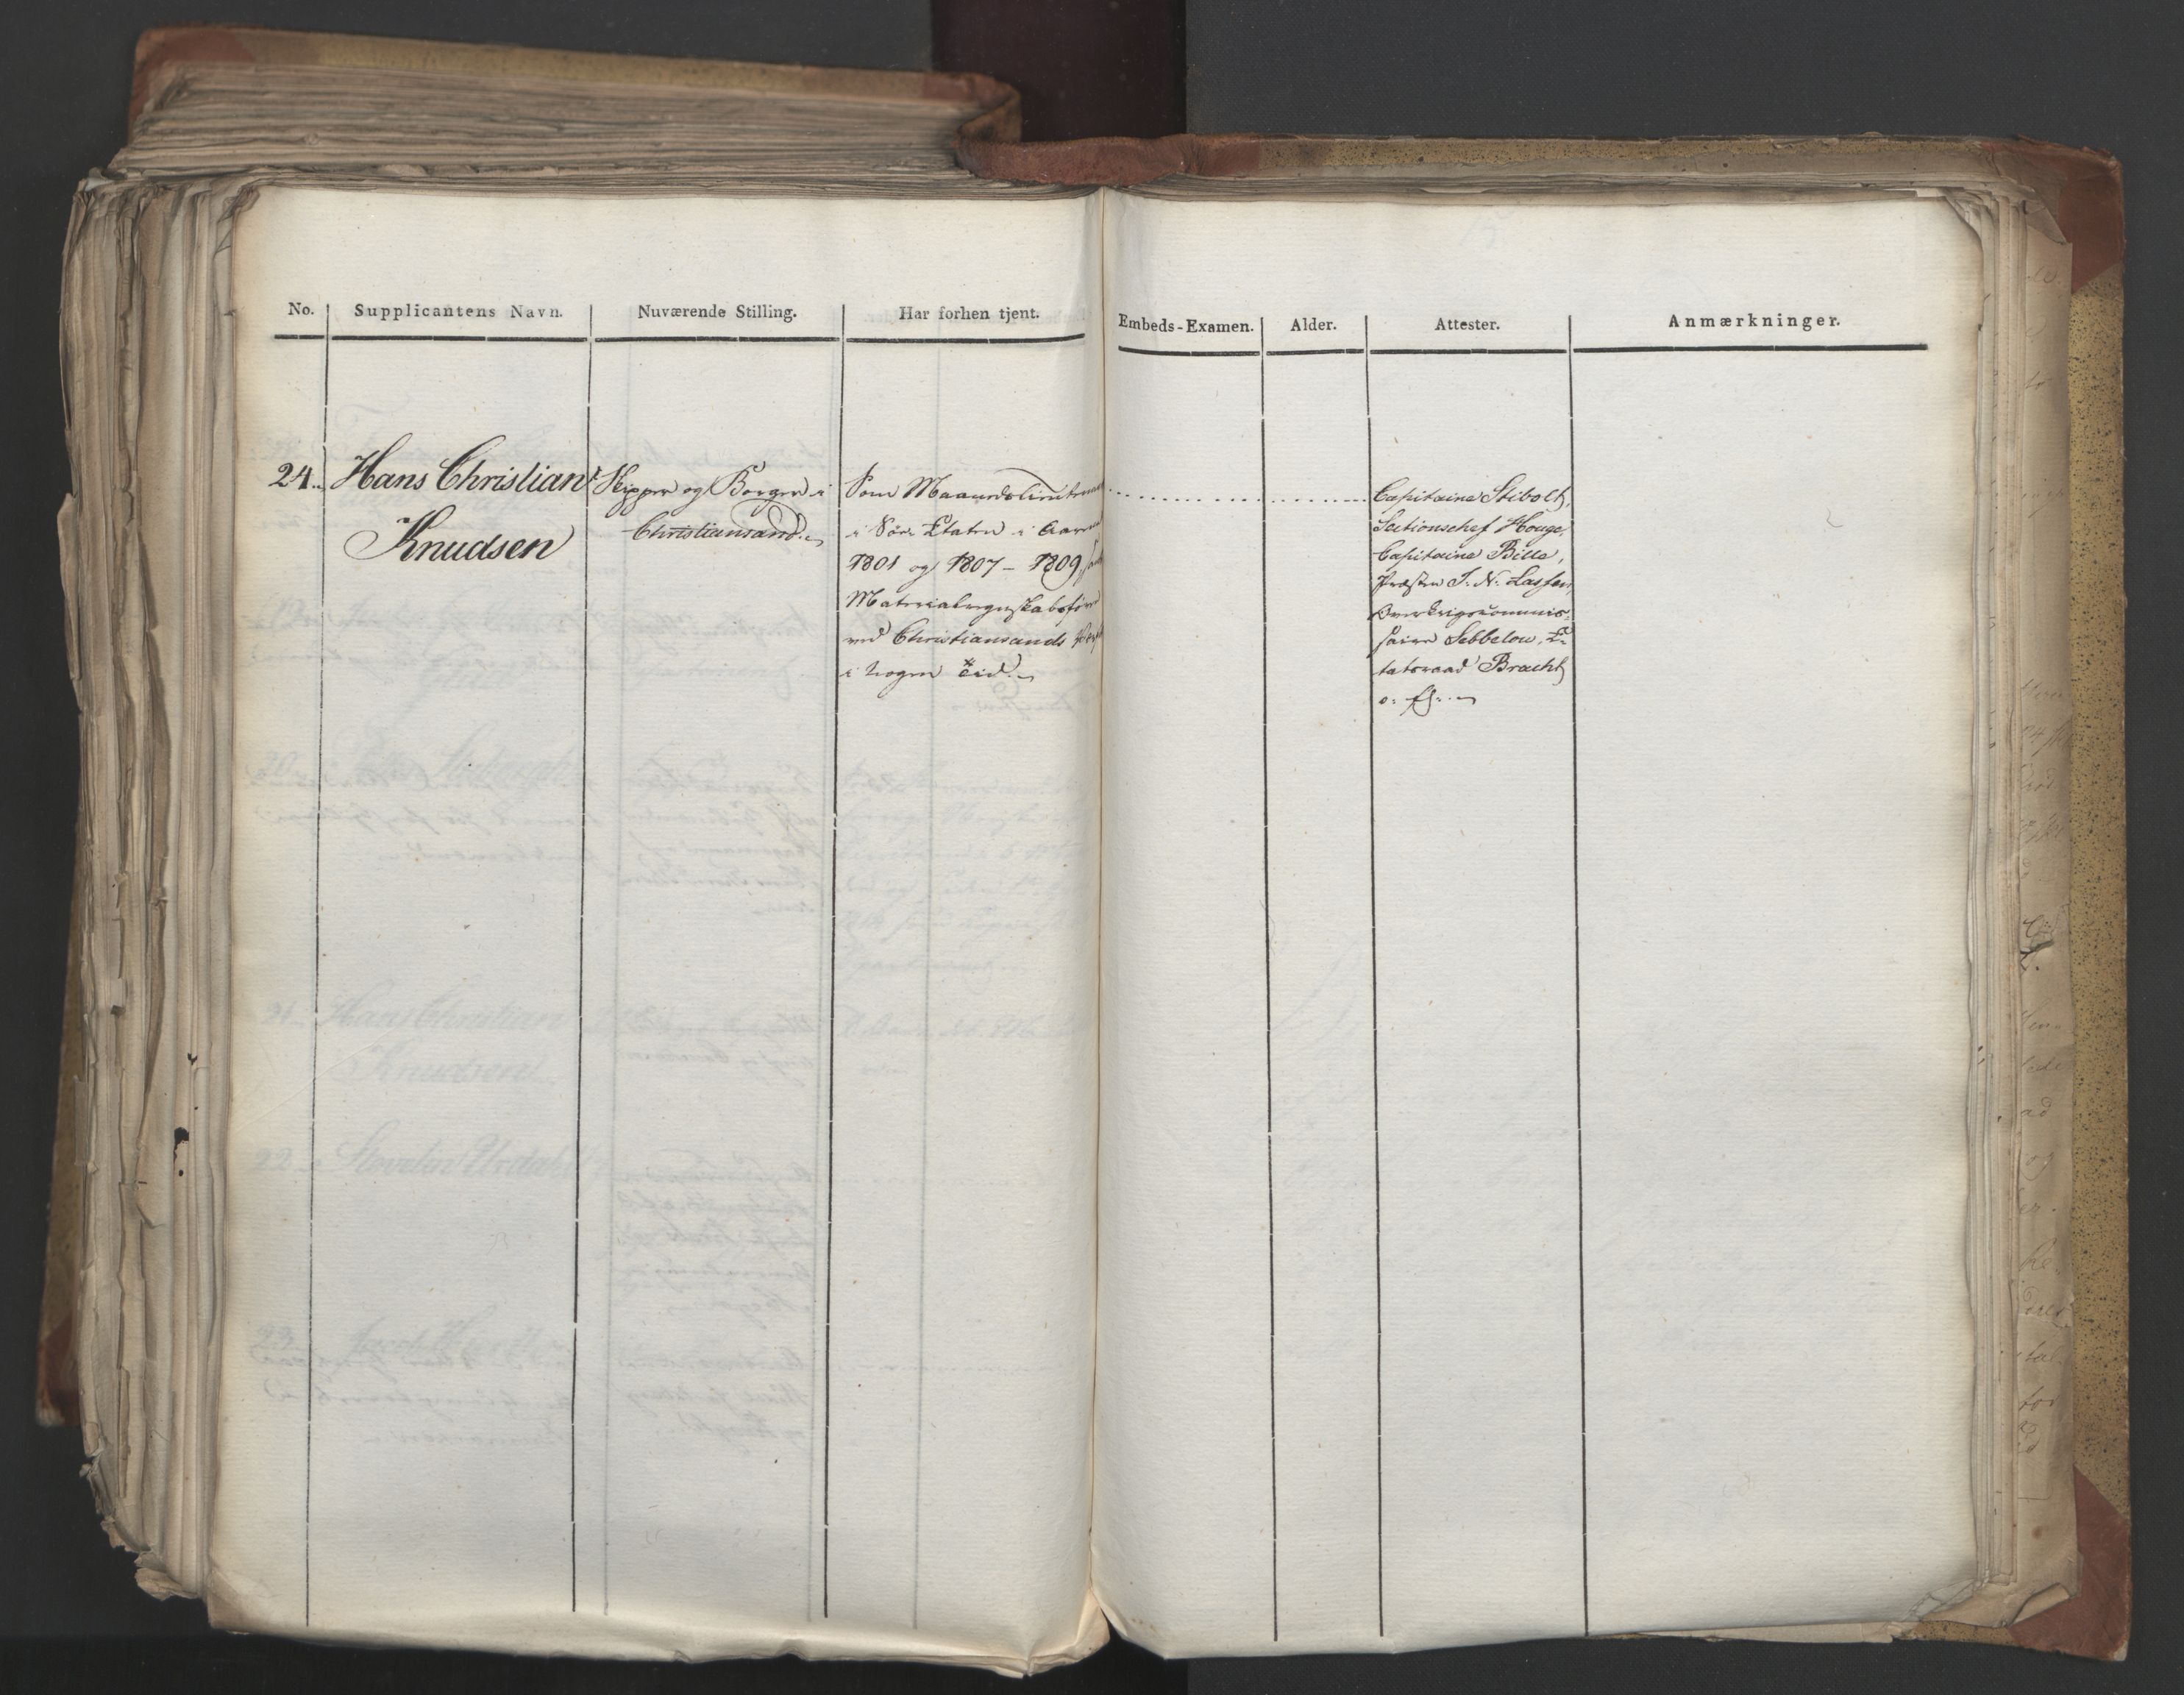 No. Supplicantens Navn. Nuværende Stilling. Har forhen tjent. Embeds-Examen. Alder. Attester. Anmærkninger.
24. Hans Christian
Knudsen
Skipper og Borger i
Christiansand.
Som Maanedslieutenant
i Søe Etaten i Aarene
1801 og 1807 - 1809,
Materialregnskabsfører
ved Christiansands
i nogen Tid.
Capitaine Stibolt,
Sectionschef Houge,
Capitaine Bille,
Præsten J. N. Lassen,
Overkrigscommis-
saire Sebbelow, E-
tatsraad Bracht
o: fl: